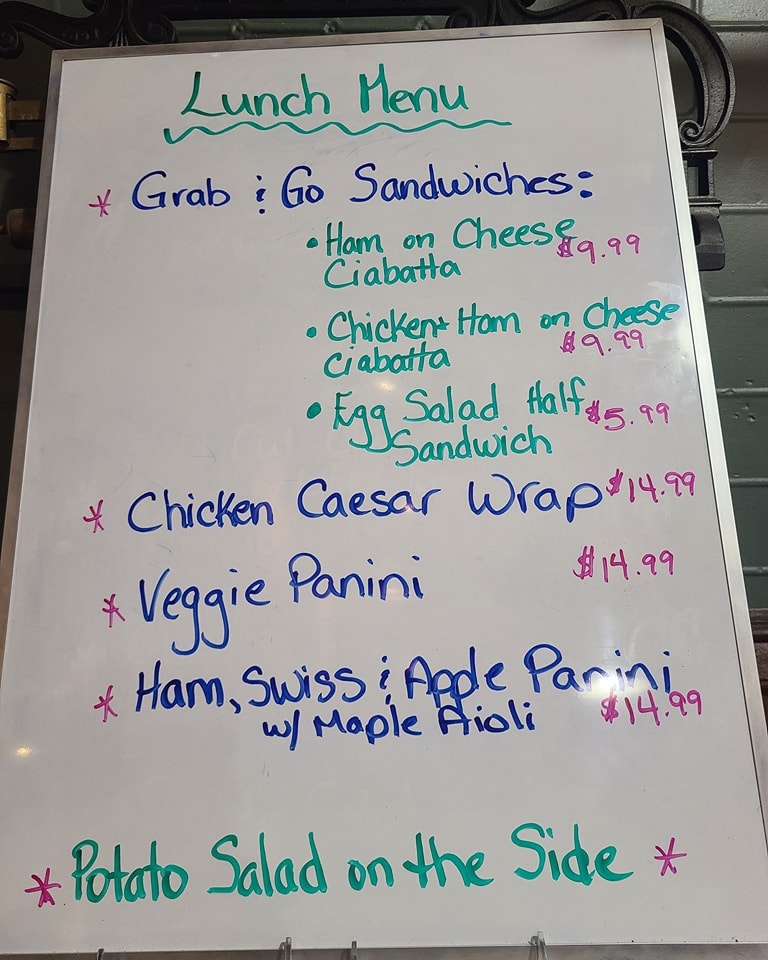 Lunch Menu
* Grab & Go Sandwiches:
• Ham on Cheese $9.99
Ciabatta
• Chicken + Ham on Cheese
Ciabatta $9.99
• Egg Salad Half $5.99
Sandwich
* Chicken Caesar Wrap $14.99
* Veggie Panini $14.99
* Ham, Swiss & Apple Panini
w/ Maple Aioli $14.99
* Potato Salad on the Side *